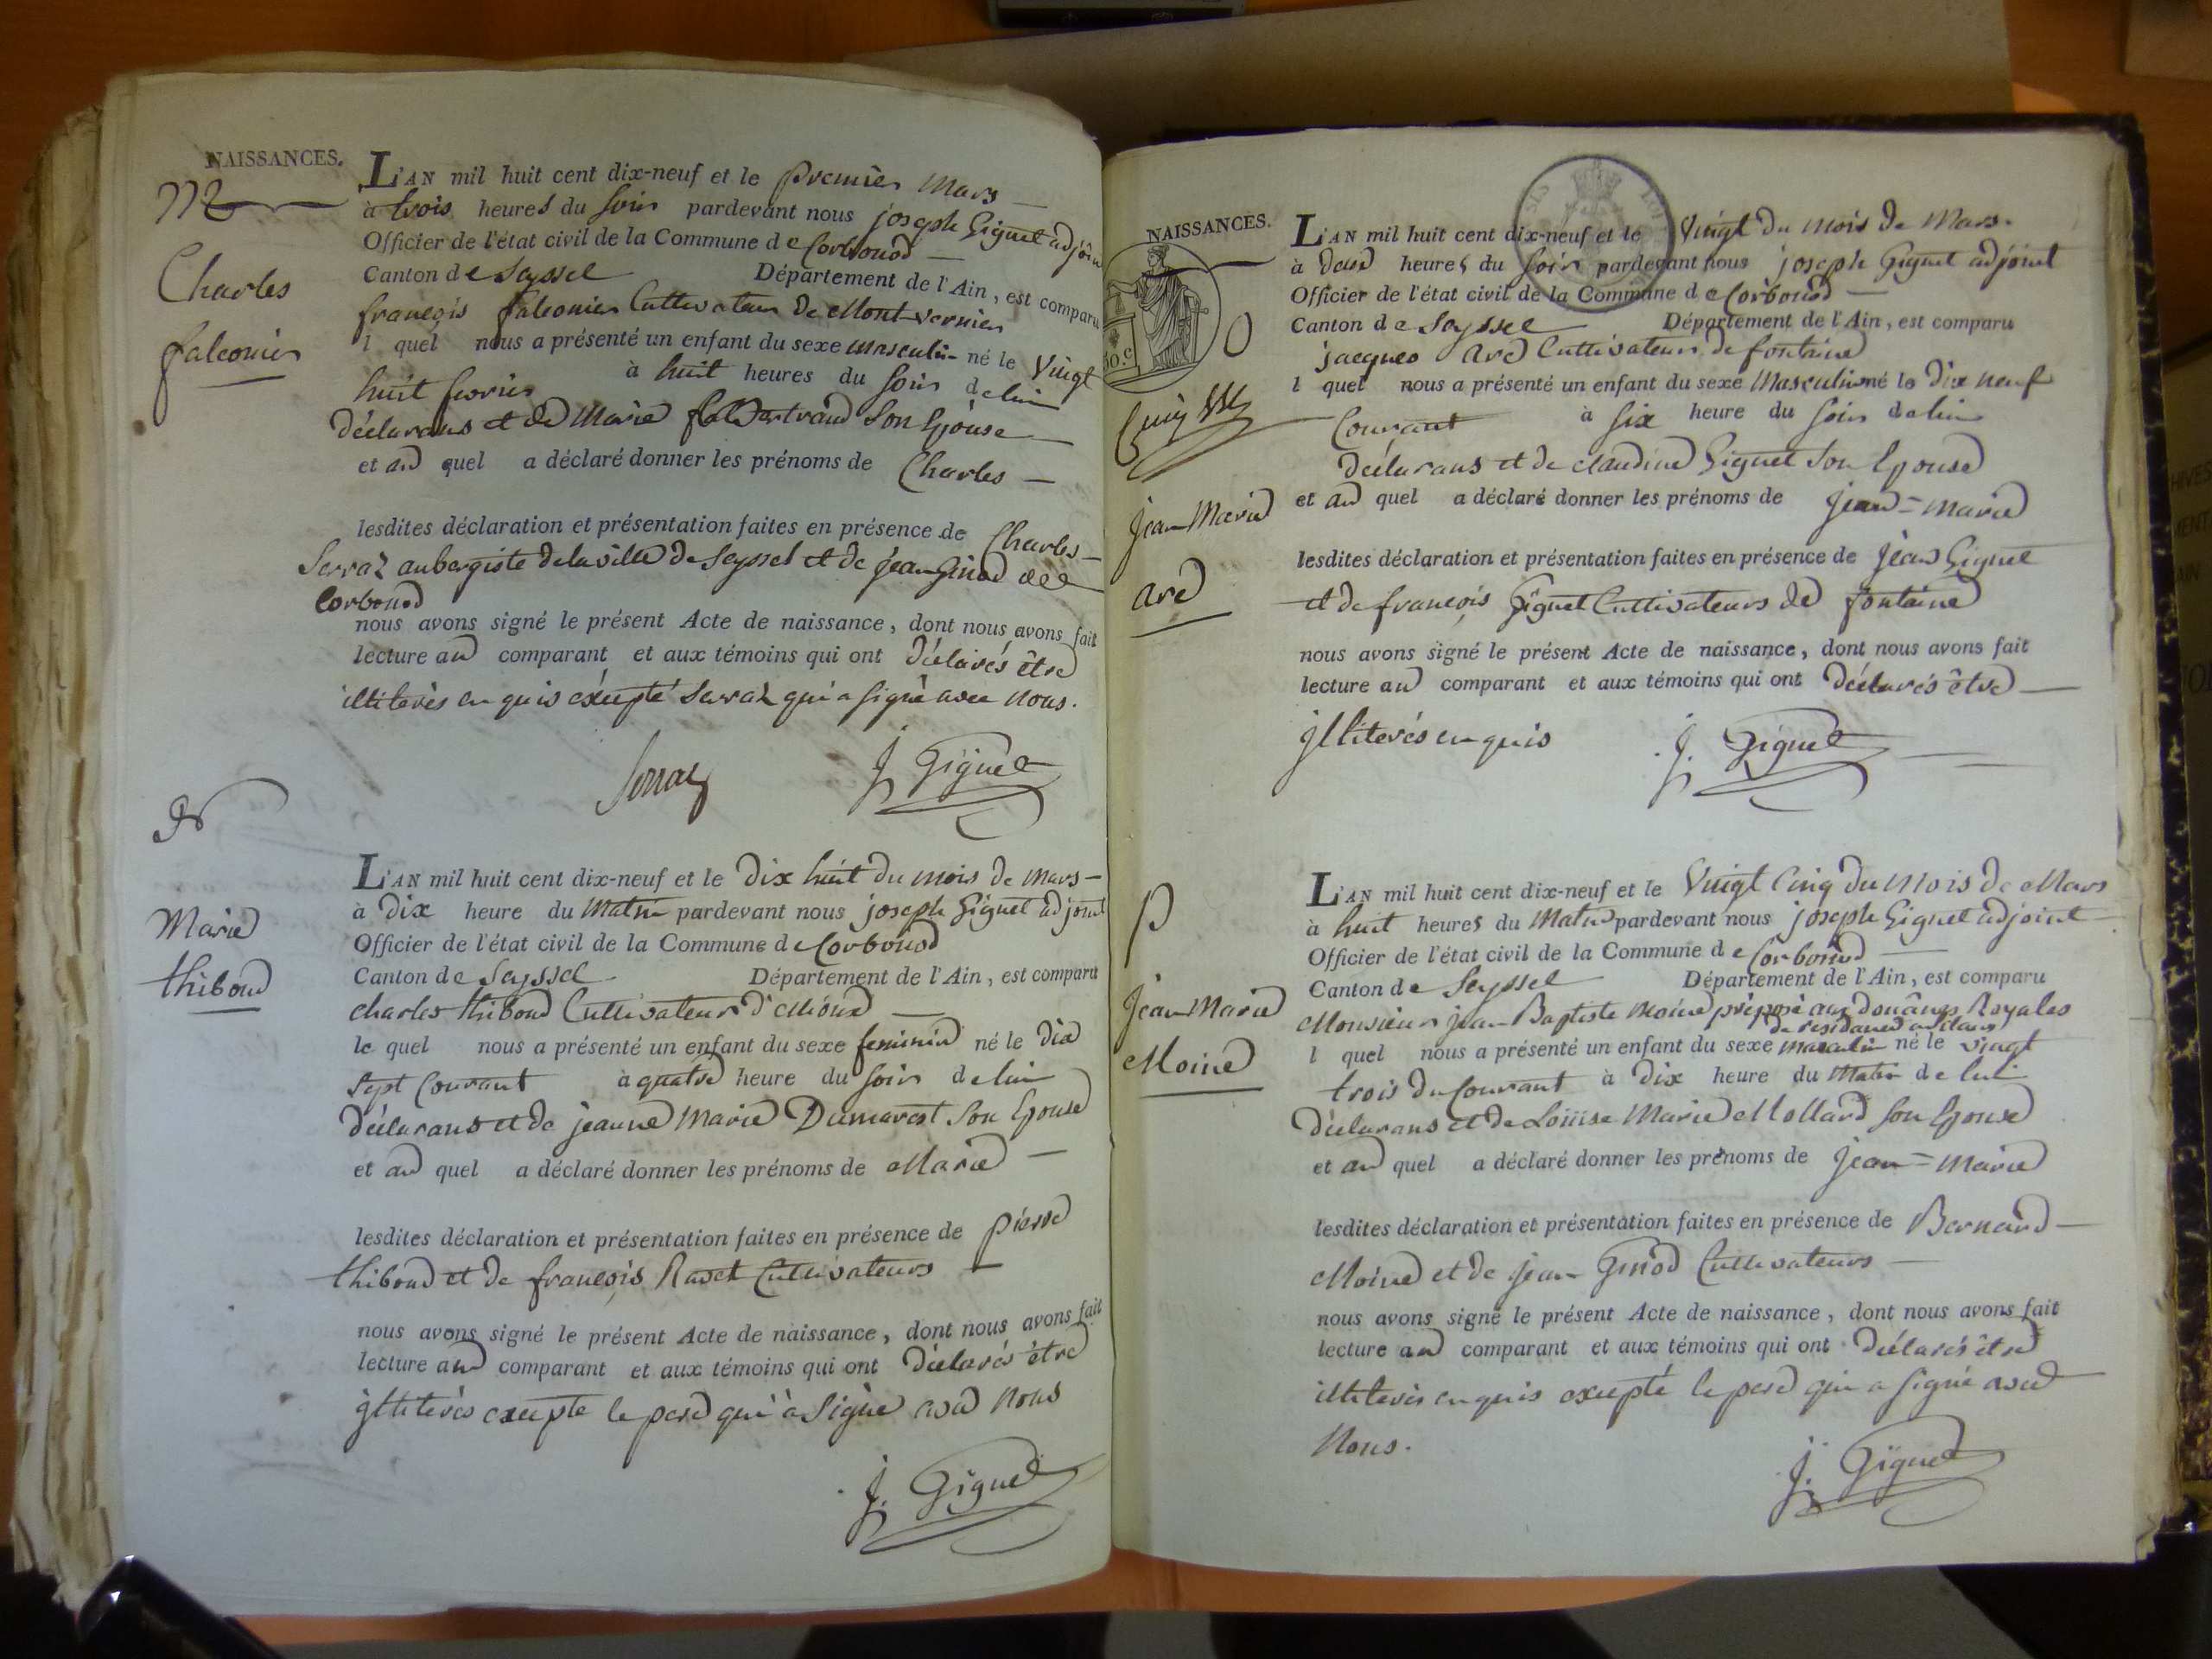 NAISSANCES.
Charles
falconier
L'AN mil huit cent dix-neuf et le premier Mars
à trois heures du soir pardevant nous joseph Giguet adjoint
Officier de l'état civil de la Commune de Corbonod
Canton de Seyssel Département de l'Ain, est comparu
françois falconier Cultivateur de Mont-vernier
l quel nous a présenté un enfant du sexe masculin né le Vingt
huit fevrier à huit heures du soir de lui
déclarans et de Marie Bertrand Son Epouse
et au quel a déclaré donner les prénoms de Charles
lesdites déclaration et présentation faites en présence de Charles
Serraz aubergiste de la ville de Seyssel et de jean Ginod de
Corbonod
nous avons signé le présent Acte de naissance, dont nous avons fait
lecture au comparant et aux témoins qui ont déclarés être
illiterés enquis éxcepté Serraz qui a signé avec nous.
Serraz J. Giguet
Marie
thiboud
L'AN mil huit cent dix-neuf et le Dix huit du mois de Mars
à Dix heure du Matin pardevant nous joseph Giguet adjoint
Officier de l'état civil de la Commune de Corbonod
Canton de Seyssel Département de l'Ain, est comparu
charles thiboud Cultivateur
le quel nous a présenté un enfant du sexe feminin né le Dix
Sept Courant à quatre heure du soir de lui
déclarans et de jeanne Marie Dumarest Son Epouse
et au quel a déclaré donner les prénoms de Marie
lesdites déclaration et présentation faites en présence de pierre
thiboud et de françois Ravet Cultivateurs
nous avons signé le présent Acte de naissance, dont nous avons fait
lecture au comparant et aux témoins qui ont déclarés être
illiterés excepte le pere qui à Signe avec Nous
J. Giguet
NAISSANCES.
50.c
jean Marie
arc
L'AN mil huit cent dix-neuf et le Vingt du mois de Mars.
à deux heures du soir pardevant nous joseph Giguet adjoint
Officier de l'état civil de la Commune de Corbonod
Canton de Seyssel Département de l'Ain, est comparu
jacques arc Cultivateur de fontaine
l quel nous a présenté un enfant du sexe Masculin né le Dix neuf
Courant à six heure du soir de lui
déclarans et de claudine Giguet Son Epouse
et au quel a déclaré donner les prénoms de jean=marie
lesdites déclaration et présentation faites en présence de jean Giguet
et de françois Giguet Cultivateurs de fontaine
nous avons signé le présent Acte de naissance, dont nous avons fait
lecture au comparant et aux témoins qui ont déclarés être
illiterés enquis J. Giguet
jean Marie
Moine
L'AN mil huit cent dix-neuf et le Vingt Cinq du Mois de Mars
à huit heures du Matin pardevant nous joseph Giguet adjoint
Officier de l'état civil de la Commune de Corbonod
Canton de Seyssel Département de l'Ain, est comparu
Monsieur jean Baptiste Moine préposé aux douânes Royales
l quel nous a présenté un enfant du sexe masculin né le vingt
trois du Courant à Dix heure du Matin de lui
déclarans et de Loüise Marie Mollard son Epouse
et au quel a déclaré donner les prénoms de jean=marie
lesdites déclaration et présentation faites en présence de Bernard
Moine et de jean Ginod Cultivateurs
nous avons signé le présent Acte de naissance, dont nous avons fait
lecture au comparant et aux témoins qui ont déclarés être
illiterés enquis excepté le pere qui a signé avec
Nous.
J. Giguet